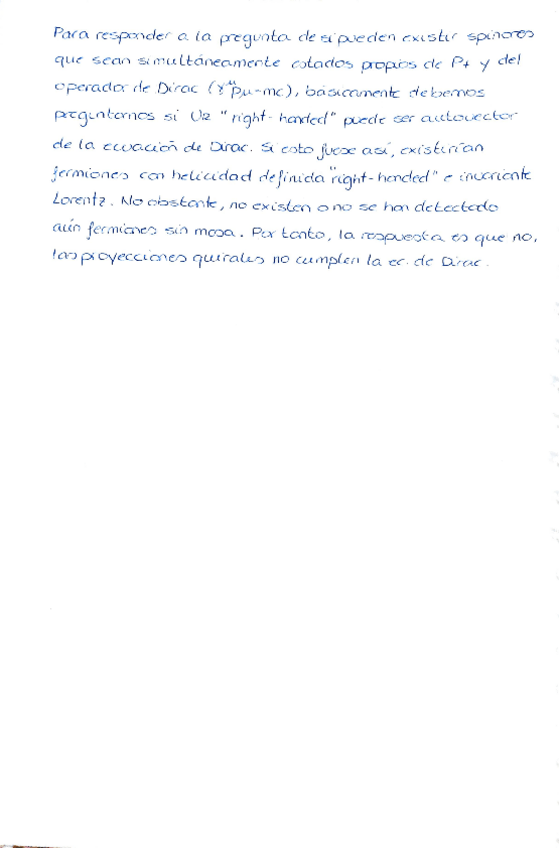 Para responder a la pregunta de si pueden existir spinores
que sean simultáneamente estados propios de P+ y del
operador de Dirac (γ^μ pμ - mc), básicamente debemos
preguntarnos si U2 "right-handed" puede ser autovector
de la ecuación de Dirac. Si esto fuese así, existirían
fermiones con helicidad definida "right-handed" e invariante
Lorentz. No obstante, no existen o no se han detectado
aún fermiones sin masa. Por tanto, la respuesta es que no,
las proyecciones quirales no cumplen la ec. de Dirac.